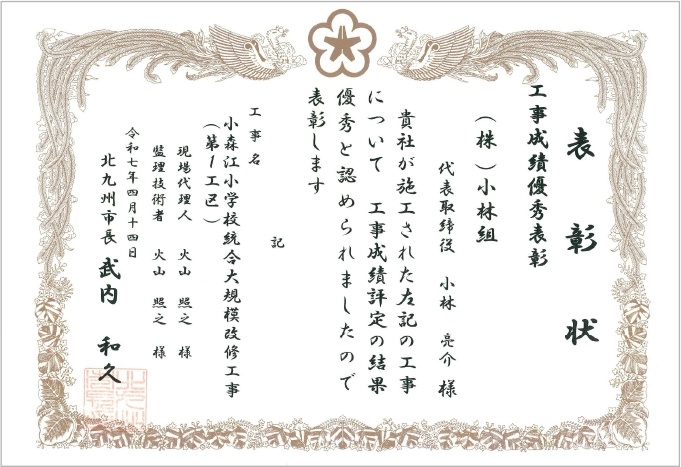 表彰状
工事成績優秀表彰
(株)小林組
代表取締役 小林 亮介 様
貴社が施工された左記の工事
について 工事成績評定の結果
優秀と認められましたので
表彰します
記
工事名
小森江小学校統合大規模改修工事
(第1工区)
現場代理人 火山 照之 様
監理技術者 火山 照之 様
令和七年四月十四日
北九州市長 武内 和久